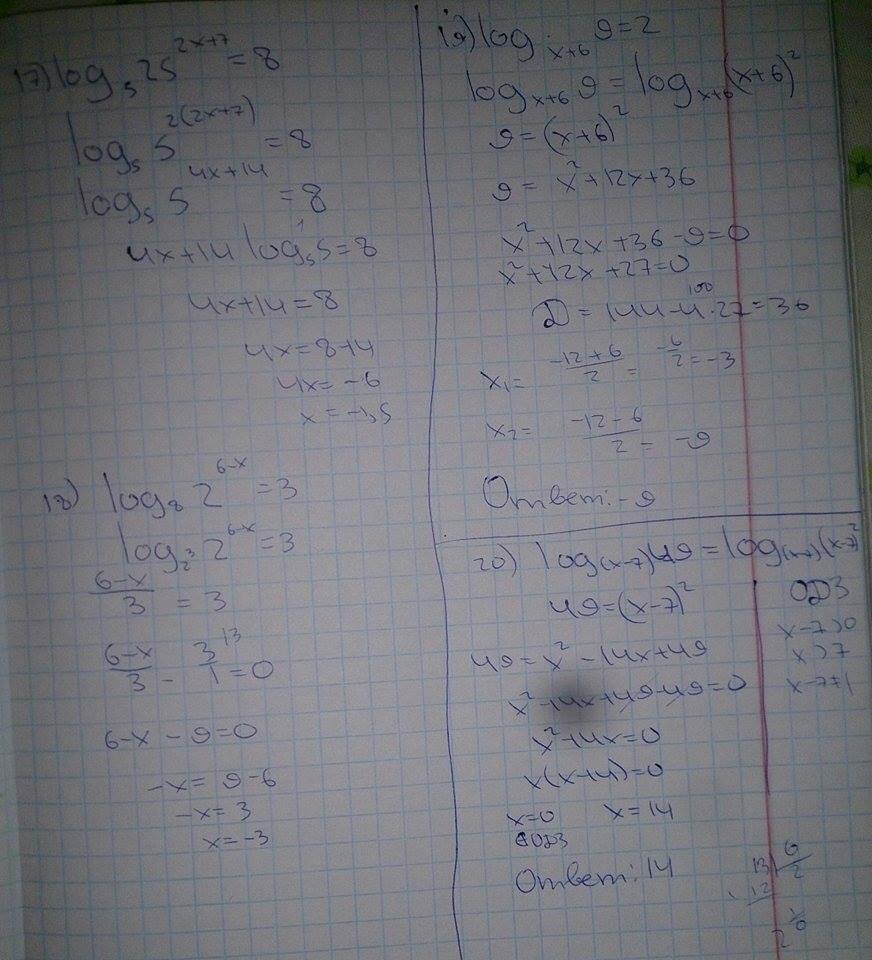 17) log₅ 25^(2x+7) = 8
log₅ 5^(2(2x+7)) = 8
log₅ 5^(4x+14) = 8
4x+14 log₅ 5 = 8
4x+14 = 8
4x = 8-14
4x = -6
x = -1,5
18) log₈ 2^(6-x) = 3
log_(2³) 2^(6-x) = 3
(6-x)/3 = 3
(6-x)/3 - 3/1 = 0
6-x - 9 = 0
-x = 9-6
-x = 3
x = -3
19) log_(x+6) 9 = 2
log_(x+6) 9 = log_(x+6) (x+6)²
9 = (x+6)²
9 = x² + 12x + 36
x² + 12x + 36 - 9 = 0
x² + 12x + 27 = 0
D = 144 - 4·27 = 36
x₁ = (-12+6)/2 = -6/2 = -3
x₂ = (-12-6)/2 = -9
Ответ: -9
20) log_(x-7) 49 = log_(x-7) (x-7)²
49 = (x-7)²
49 = x² - 14x + 49
x² - 14x + 49 - 49 = 0
x² - 14x = 0
x(x-14) = 0
x=0 x=14
∉ОДЗ
Ответ: 14
ОДЗ
x-7>0
x>7
x-7≠1
13 6
12 2
1
2 1/6